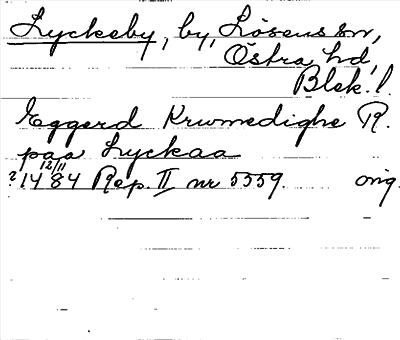 Lyckeby, by, Lösens sn,
Östra hd,
Blek. l.
Eggerd Krumedighe R.
paa Lyckaa
? 14 12/11 84 Rep. II nr 5559. orig.